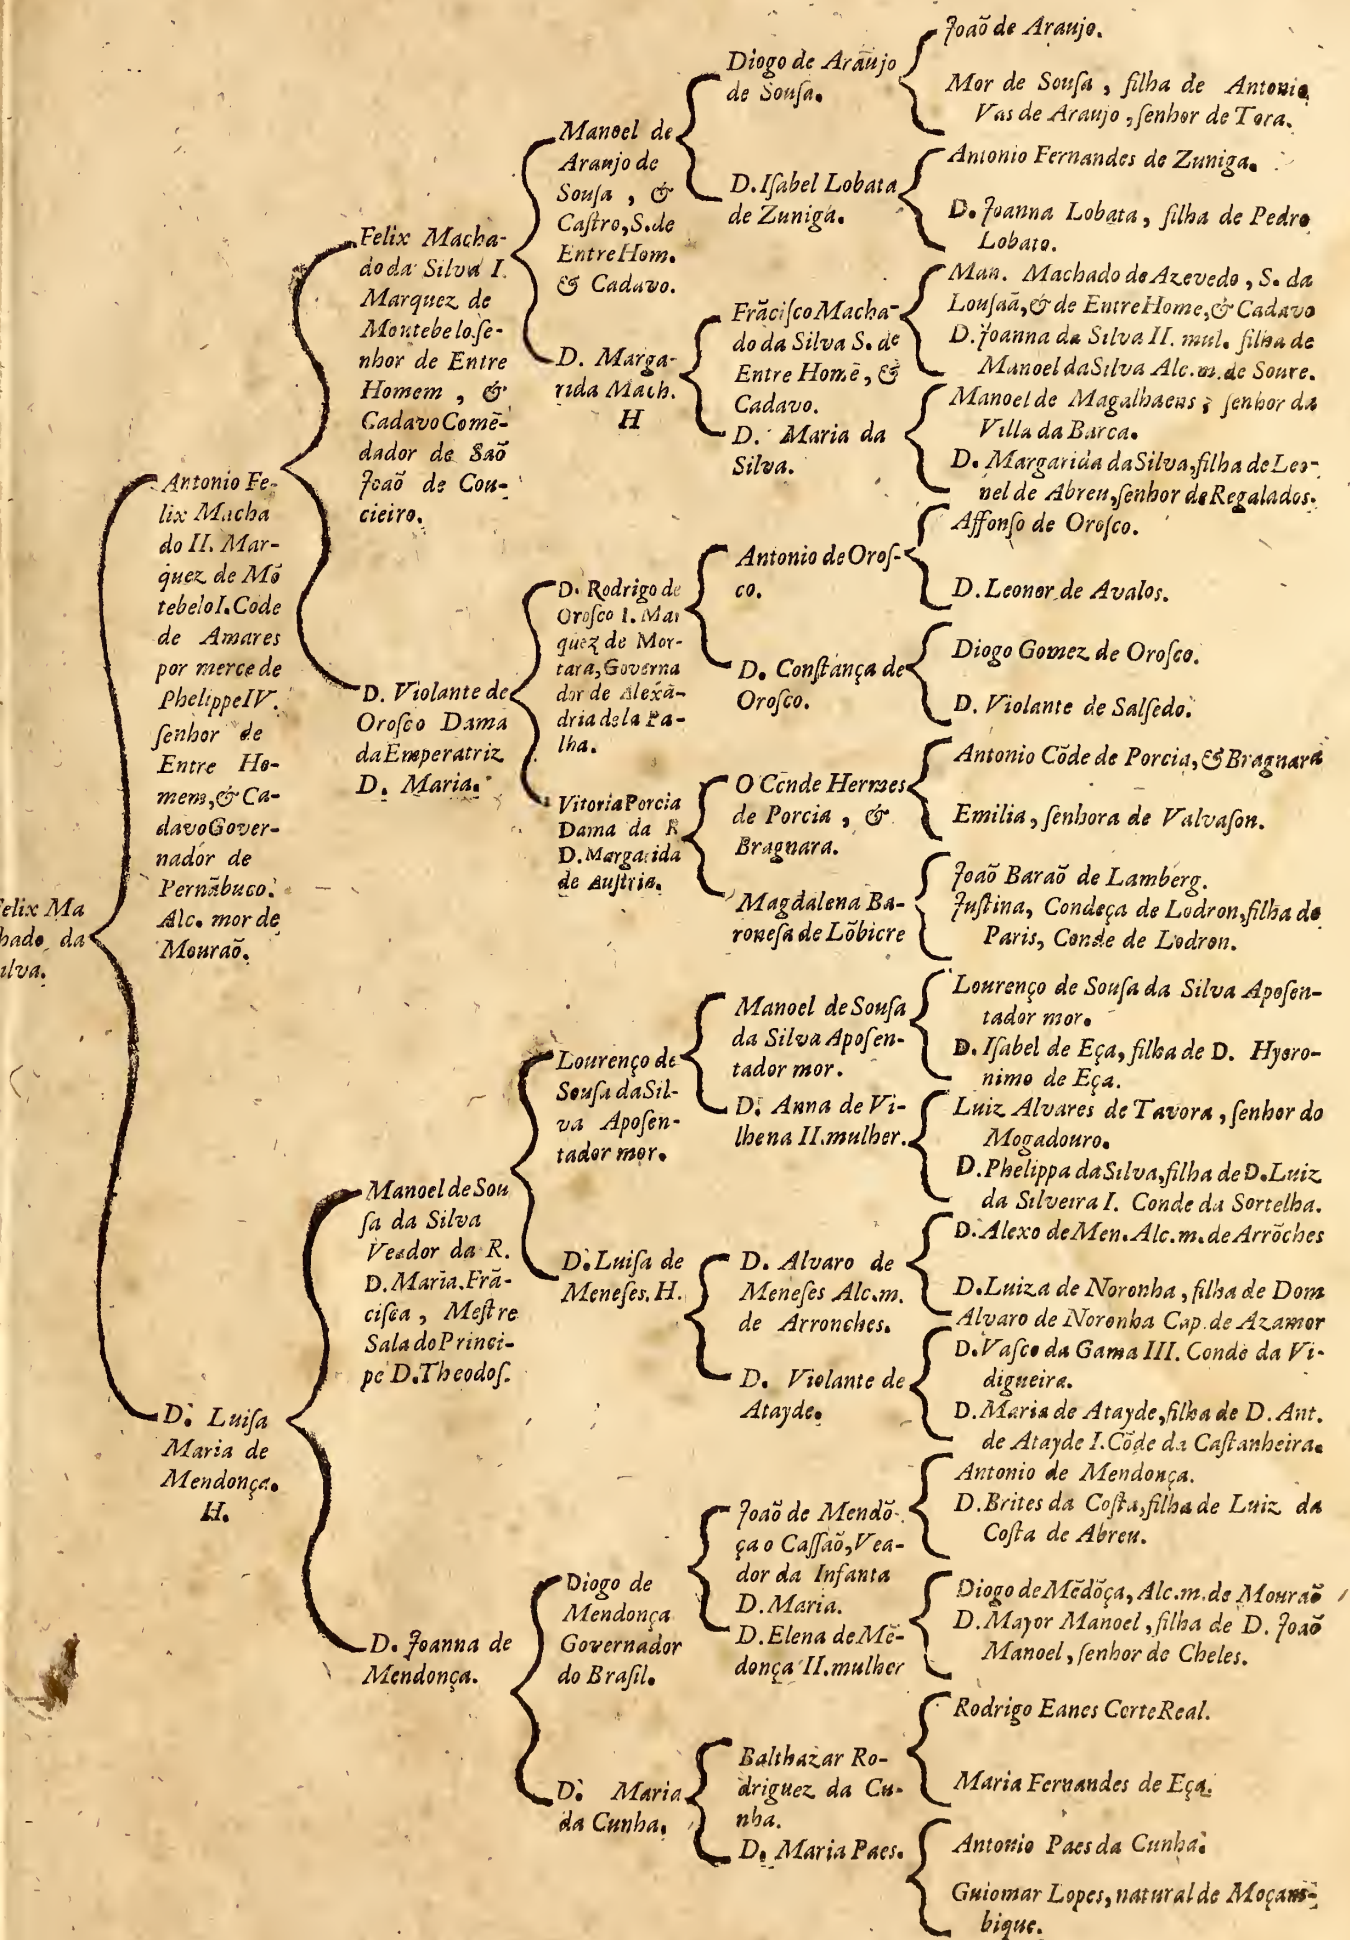 Felix Ma
chado da
Silva.
Antonio Fe-
lix Macha
do II. Mar-
quez de Mõ
tebelo I. Cõde
de Amares
por merce de
Phelippe IV.
ſenhor de
Entre Ho-
mem, & Ca-
davo Gover-
nador de
Pernãbuco.
Alc. mor de
Mouraõ.
D. Luiſa
Maria de
Mendonça.
H.
Felix Macha-
do da Silva I.
Marquez de
Montebelo, ſe-
nhor de Entre
Homem , &
Cadavo Comẽ-
dador de Saõ
Joaõ de Cou-
cieiro.
D. Violante de
Oroſco Dama
da Emperatriz
D. Maria.
Manoel de Sou
ſa da Silva
Veador da R.
D. Maria Frã-
ciſca , Meſtre
Sala do Princi-
pe D. Theodoſ.
D. Joanna de
Mendonça.
Manoel de
Araujo de
Souſa , &
Caſtro, S. de
Entre Hom.
& Cadavo.
D. Marga-
rida Mach.
H
D. Rodrigo de
Oroſco I. Mar
quez de Mor-
tara, Governa
dor de Alexã-
dria dela Pa-
lha.
Vitoria Porcia
Dama da R
D. Margarida
de Auſtria.
Lourenço de
Souſa da Sil-
va Apoſen-
tador mor.
D. Luiſa de
Meneſes. H.
Diogo de
Mendonça
Governador
do Braſil.
D. Maria
da Cunha.
Diogo de Araujo
de Souſa.
D. Iſabel Lobata
de Zuniga.
Frãciſco Macha-
do da Silva S. de
Entre Homẽ , &
Cadavo.
D. Maria da
Silva.
Antonio de Oroſ-
co.
D. Conſtança de
Oroſco.
O Conde Hermes
de Porcia , &
Bragnara.
Magdalena Ba-
roneſa de Lõbicre
Manoel de Souſa
da Silva Apoſen-
tador mor.
D. Anna de Vi-
lhena II. mulher.
D. Alvaro de
Meneſes Alc. m.
de Arronches.
D. Violante de
Atayde.
Joaõ de Mendõ-
ça o Caſſaõ, Vea-
dor da Infanta
D. Maria.
D. Elena de Mẽ-
donça II. mulher
Balthazar Ro-
driguez da Cu-
nha.
D. Maria Paes.
Joaõ de Araujo.
Mor de Souſa , filha de Antonio
Vas de Araujo , ſenhor de Tora.
Antonio Fernandes de Zuniga.
D. Joanna Lobata , filha de Pedro
Lobato.
Man. Machado de Azevedo , S. da
Louſaã, & de Entre Home, & Cadavo
D. Joanna da Silva II. mul. filha de
Manoel da Silva Alc. m. de Soure.
Manoel de Magalhaens , ſenhor da
Villa da Barca.
D. Margarida da Silva, filha de Leo-
nel de Abreu, ſenhor de Regalados.
Affonſo de Oroſco.
D. Leonor de Avalos.
Diogo Gomez de Oroſco.
D. Violante de Salſedo.
Antonio Cõde de Porcia, & Bragnara
Emilia , ſenhora de Valvaſon.
Joaõ Baraõ de Lamberg.
Juſtina, Condeça de Lodron, filha de
Paris, Conde de Lodron.
Lourenço de Souſa da Silva Apoſen-
tador mor.
D. Iſabel de Eça, filha de D. Hyero-
nimo de Eça.
Luiz Alvares de Tavora , ſenhor do
Mogadouro.
D. Phelippa da Silva, filha de D. Luiz
da Silveira I. Conde da Sortelha.
D. Alexo de Men. Alc. m. de Arrõches
D. Luiza de Noronha , filha de Dom
Alvaro de Noronha Cap. de Azamor
D. Vaſco da Gama III. Conde da Vi-
digueira.
D. Maria de Atayde, filha de D. Ant.
de Atayde I. Cõde da Caſtanheira.
Antonio de Mendonça.
D. Brites da Coſta, filha de Luiz da
Coſta de Abreu.
Diogo de Mẽdõça, Alc. m. de Mouraõ
D. Mayor Manoel , filha de D. Joaõ
Manoel , ſenhor de Cheles.
Rodrigo Eanes Corte Real.
Maria Fernandes de Eça.
Antonio Paes da Cunha.
Guiomar Lopes, natural de Moçam-
bique.